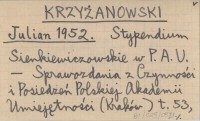 KRZYŻANOWSKI
Julian 1952. Stypendium
Sienkiewiczowskie w P.A.U.
— Sprawozdania z Czynności
i Posiedzeń Polskiej Akademii
Umiejętności (Kraków) t. 53,